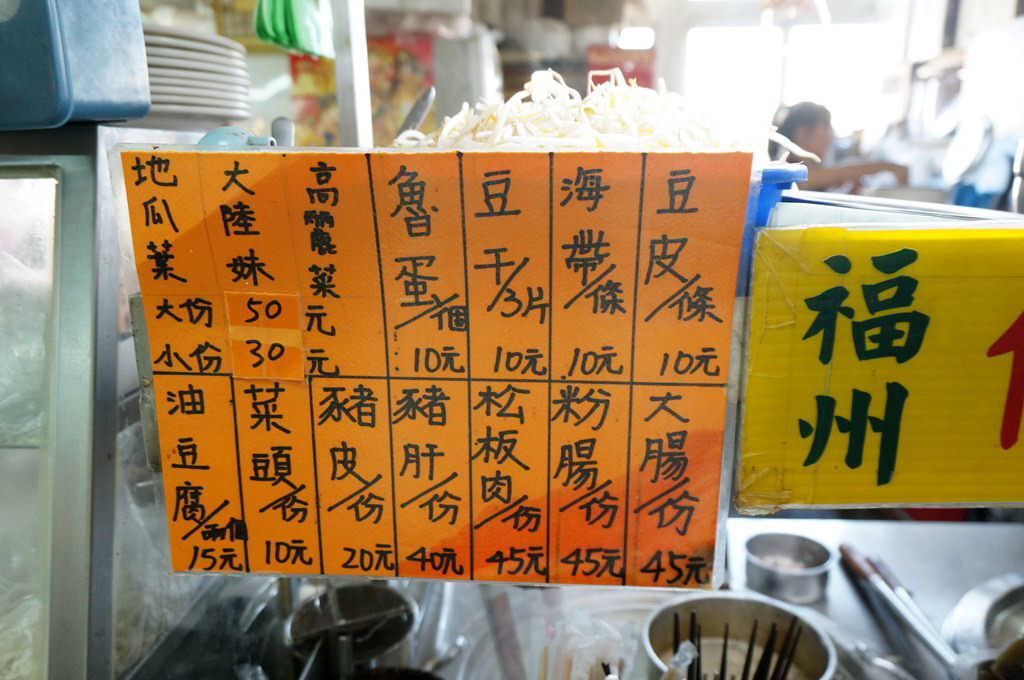 地瓜葉
大陸妹
高麗菜
大份 50 元
小份 30 元
魯蛋/個
10元
豆干/3片
10元
海帶/條
10元
豆皮/條
10元
油豆腐/兩個
15元
菜頭/份
10元
豬皮/份
20元
豬肝/份
40元
松板肉/份
45元
粉腸/份
45元
大腸/份
45元
福州